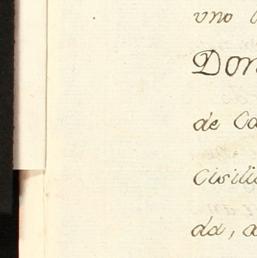 uno
Don
de Ca
Civili
da, a